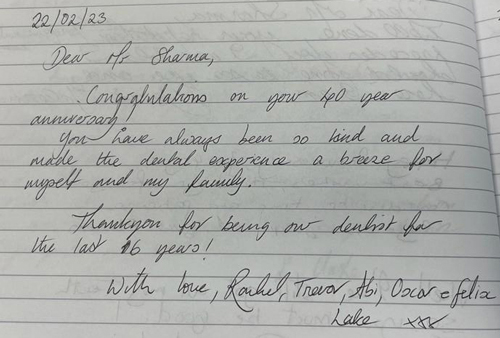 22/02/23
Dear Mr Sharma,
Congratulations on your 40 year
anniversary
You have always been so kind and
made the dental experience a breeze for
myself and my family.
Thankyou for being our dentist for
the last 16 years!
With love, Rachel, Trevor, Abi, Oscar & Felix
Lake xxx